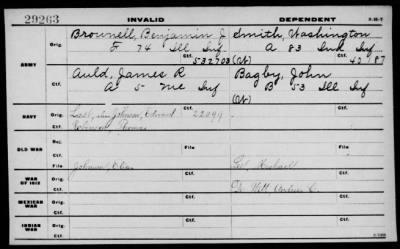 29263 INVALID DEPENDENT
ARMY
Orig. Brownell, Benjamin J Smith, Washington
F 74 Ill Inf A 83 Ind Inf
Ctf. 532703 (W) Ctf.
Orig. Auld, James R Bagby, John
A 5 Me Inf B 53 Ill Inf
Ctf. (W) Ctf.
NAVY
Orig. Johnson, Edward 22099
Ctf. Johnson, Thomas Ctf.
OLD WAR
Rej.
Ctf.
File Johnson, Elias File
WAR OF 1812
Orig.
Ctf. Ctf.
MEXICAN WAR
Orig.
Ctf. Ctf.
INDIAN WAR
Orig.
Ctf. Ctf.